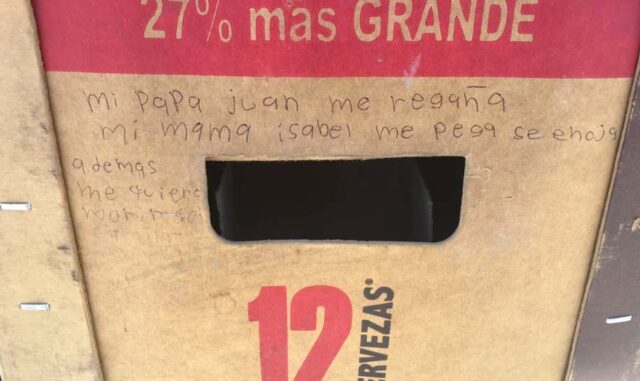 27% mas GRANDE
mi papa juan me regaña
mi mama isabel me pega se enoja
ademas
me quiero
12
ERVEZAS®